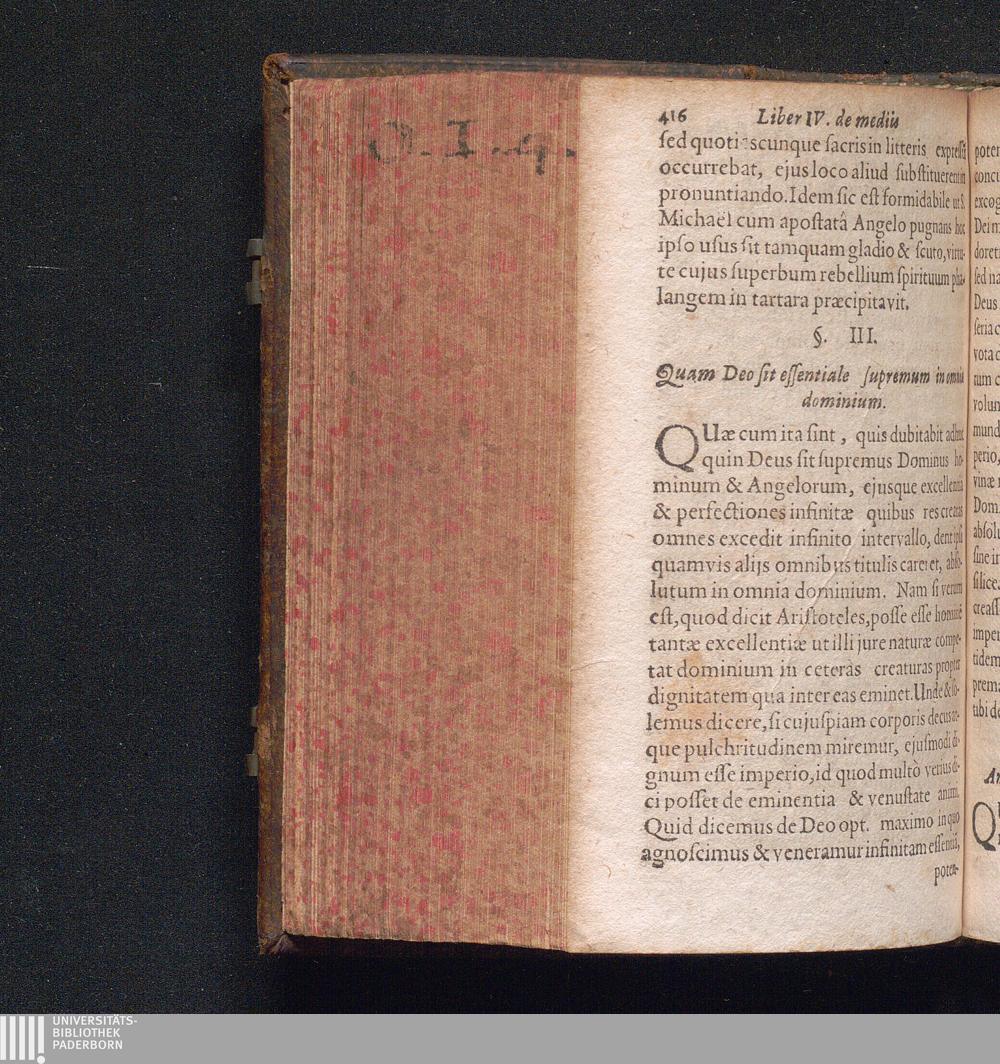 O. I. 
416 Liber IV. de mediis
sed quotiescunque sacris in litteris expressũ
occurrebat, ejus loco aliud substituerent in
pronuntiando. Idem sic est formidabile ut S.
Michaël cum apostatâ Angelo pugnans hoc
ipso usus sit tamquam gladio & scuto, virtu-
te cujus superbum rebellium spirituum pha-
langem in tartara præcipitavit.
§. III.
Quam Deo sit essentiale supremum in omnia
dominium.
QUæ cum ita sint, quis dubitabit adhuc
quin Deus sit supremus Dominus ho-
minum & Angelorum, ejusque excellentiâ
& perfectiones infinitæ quibus res creatas
omnes excedit infinito intervallo, dent ipsi
quamvis alijs omnibus titulis careret, abso-
lutum in omnia dominium. Nam si verum
est, quod dicit Aristoteles, posse esse hominẽ
tantæ excellentiæ ut illi jure naturæ compe-
tat dominium in ceteras creaturas propter
dignitatem qua inter eas eminet. Unde & so-
lemus dicere, si cujuspiam corporis decus at-
que pulchritudinem miremur, ejusmodi di-
gnum esse imperio, id quod multò verius di-
ci posset de eminentia & venustate animi.
Quid dicemus de Deo opt. maximo in quo
agnoscimus & veneramur infinitam essentiã,
poten-
UNIVERSITÄTS-
BIBLIOTHEK
PADERBORN